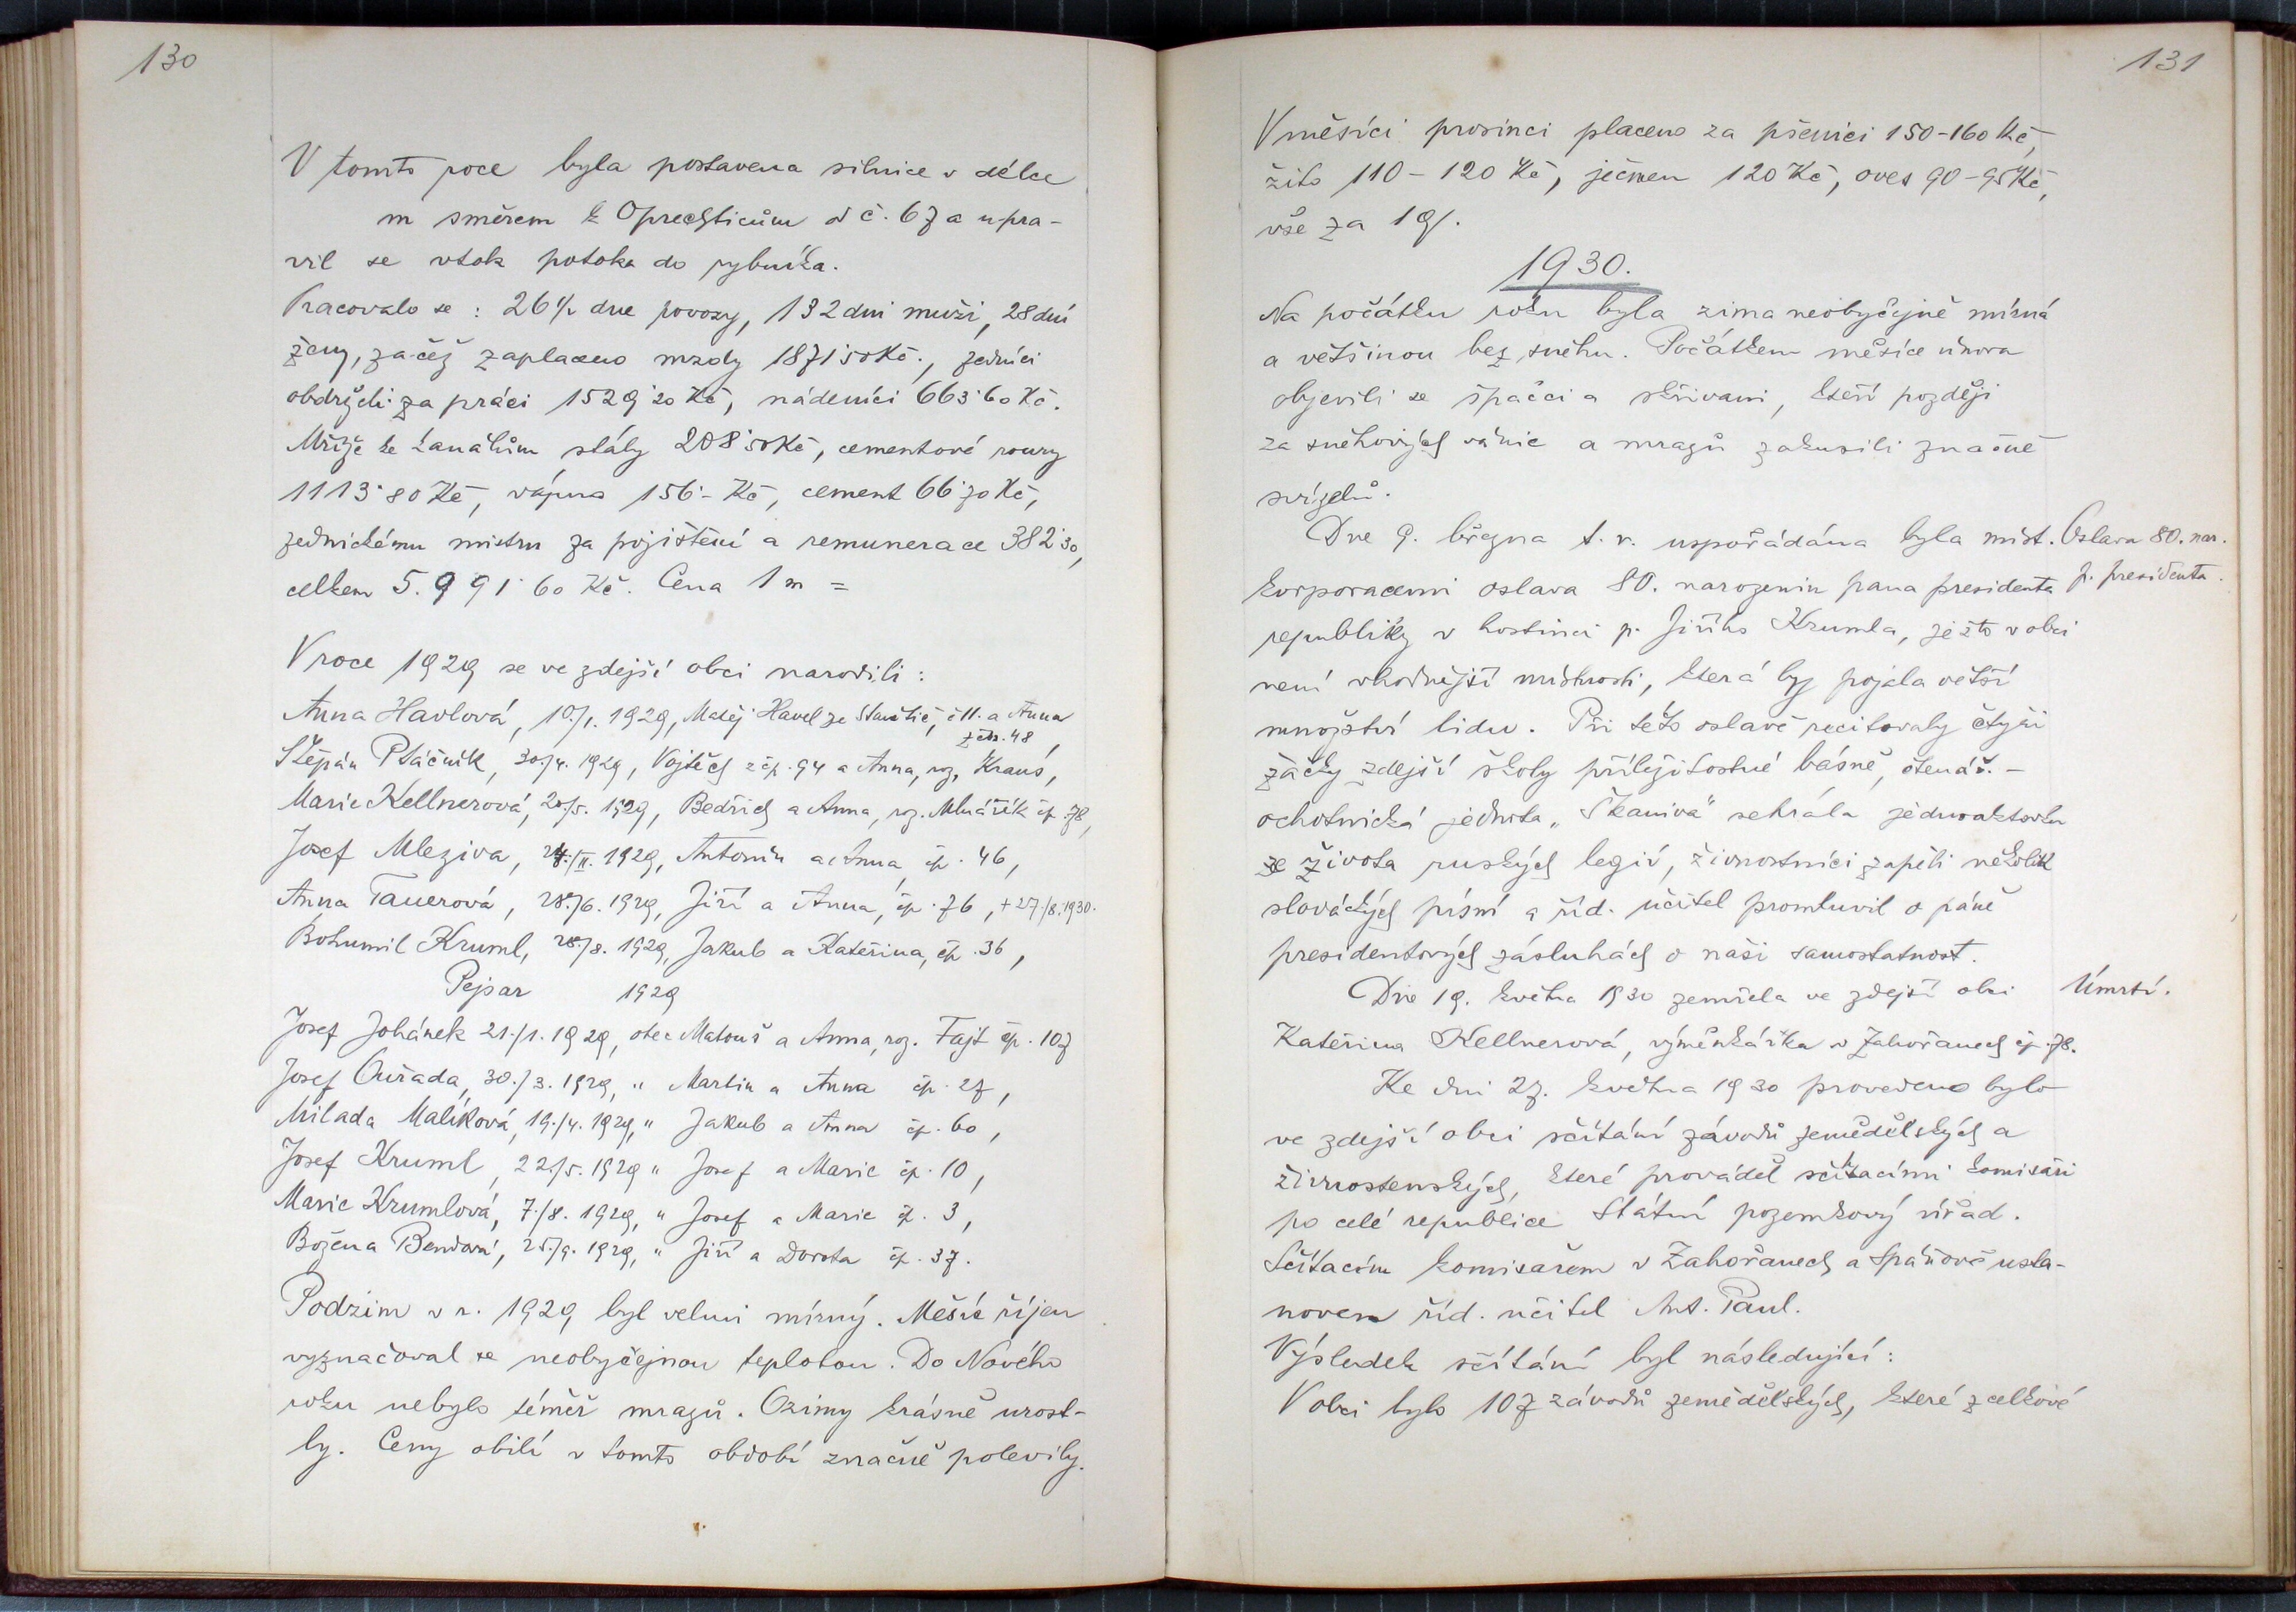 130
V tomto roce byla postavena silnice v délce
m směrem k Oprechticům od č. 67 a upra-
vil se vtok potoka do rybníka.
Pracovalo se : 26 1/2 dne povozy, 132 dní muži, 28 dní
ženy, začež zaplaceno mzdy 1871·50 Kč., zedníci
obdrželi za práci 1529·20 Kč, nádeníci 663·60 Kč.
Mříže ke kanálům stály 208·50 Kč, cementové roury
1113·80 Kč, vápno 156·- Kč, cement 66·70 Kč,
zednickému mistru za pojištění a remunerace 382·30,
celkem 5.991·60 Kč. Cena 1 m =
V roce 1929 se ve zdejší obci narodili :
Anna Havlová, 10./1. 1929, Matěj Havel ze Stanětic, č 11. a Anna
z čís. 48,
Štěpán Ptáčník, 30./4. 1929, Vojtěch z čp. 94 a Anna, roz. Kraus,
Marie Kellnerová, 20./5. 1929, Bedřich a Anna, roz. Mlnářík čp. 78,
Josef Mleziva, 24./II. 1929, Antonín a Anna čp. 46,
Anna Tauerová, 28./6. 1929, Jiří a Anna, čp. 76, + 27./8.1930.
Bohumil Kruml, 28./8. 1929, Jakub a Kateřina, čp. 36,
Pejsar 1929
Josef Johánek 21./1. 1929, otec Matouš a Anna, roz. Fajt čp. 107
Josef Ouřada, 30./3. 1929, " Martin a Anna čp. 27,
Milada Malíková, 19./4. 1929, " Jakub a Anna čp. 60,
Josef Kruml, 22./5. 1929 " Josef a Marie čp. 10,
Marie Krumlová, 7./8. 1929, " Josef a Marie čp. 3,
Božena Bendová, 25./9. 1929, " Jiří a Dorota čp. 37.
Podzim v r. 1929 byl velmi mírný. Měsíc říjen
vyznačoval se neobyčejnou teplotou. Do Nového
roku nebylo téměř mrazů. Ozimy krásně urost-
ly. Ceny obilí v tomto období značně polevily.
131
V měsíci prosinci placeno za pšenici 150-160 Kč,
žito 110 - 120 Kč, ječmen 120 Kč, oves 90 - 95 Kč,
vše za 1 q.
1930.
Na počátku roku byla zima neobyčejně mírná
a většinou bez sněhu. Počátkem měsíce února
objevili se špačci a skřivani, kteří později
za sněhových vánic a mrazů zakusili značně
svízelů.
Dne 9. března t. r. uspořádána byla míst.
Oslava 80. nar.
korporacemi oslava 80. narozenin pana presidenta
p. presidenta.
republiky v hostinci p. Jiřího Krumla, ježto v obci
není vhodnější místnosti, která by pojala větší
množství lidu. Při této oslavě recitovaly čtyři
žačky zdejší školy příležitostné básně, čtenář. -
ochotnická jednota „Škanivá" sehrála jednoaktovku
ze života ruských legií, živnostníci zapěli několik
slováckých písní a říd. učitel promluvil o páně
presidentových zásluhách o naši samostatnost.
Dne 19. května 1930 zemřela ve zdejší obci
Úmrtí.
Kateřina Kellnerová, výměnkářka v Zahořanech čp. 78.
Ke dni 27. května 1930 provedeno bylo
ve zdejší obci sčítání závodů zemědělských a
živnostenských, které prováděl sčítacími komisaři
po celé republice Státní pozemkový úřad.
Sčítacím komisařem v Zahořanech a Spáňově usta-
noven říd. učitel Ant. Paul.
Výsledek sčítání byl následující :
V obci bylo 107 závodů zemědělských, které z celkové